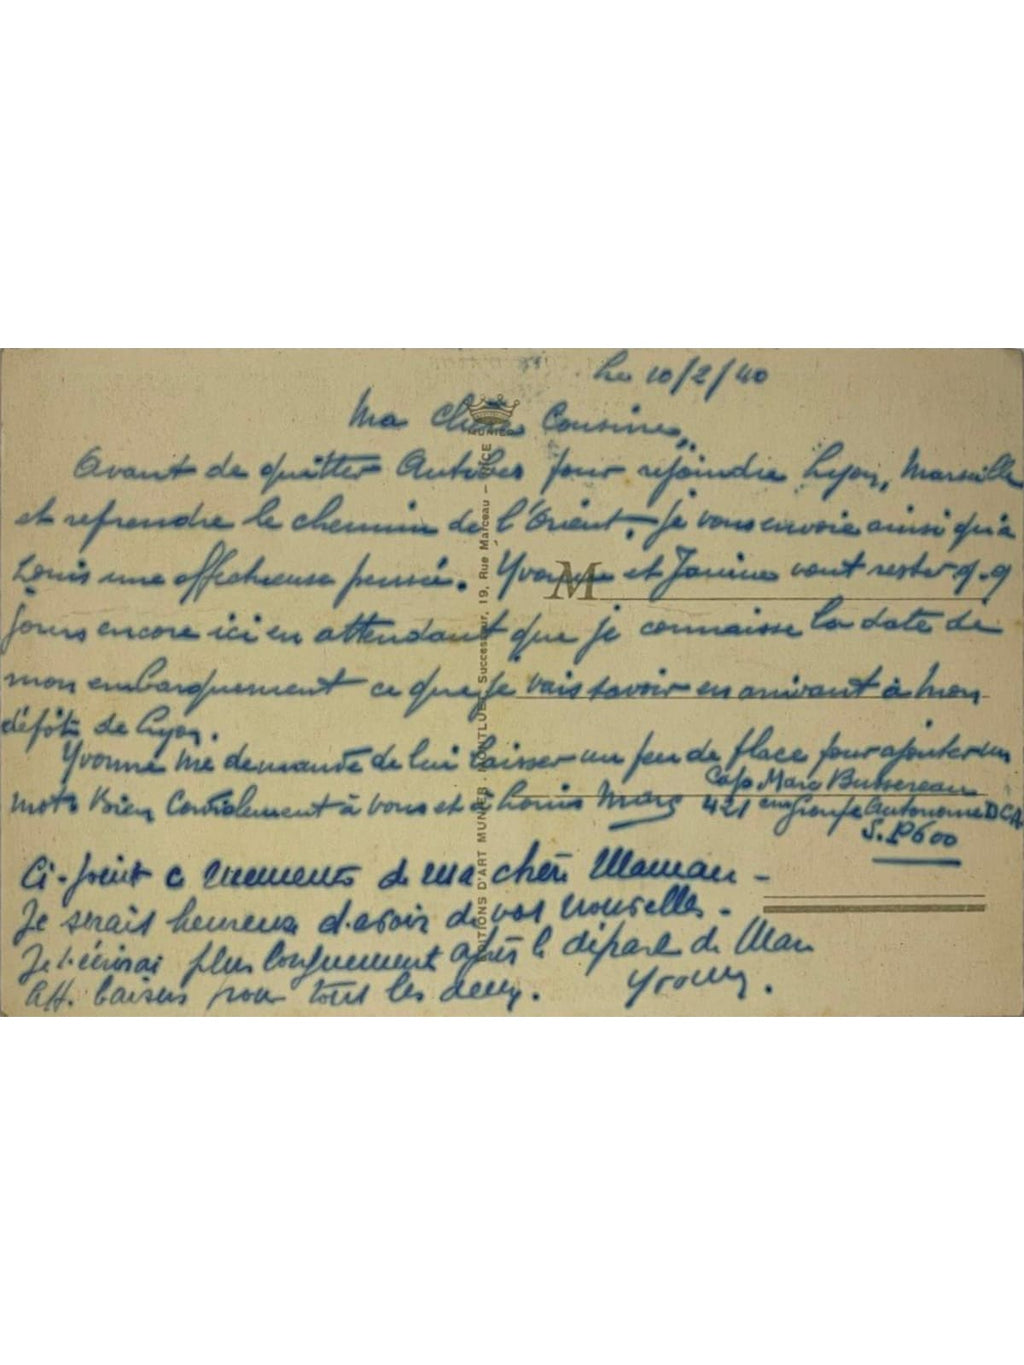 Le 10/2/40
Ma chère Cousine,
Avant de quitter Antibes pour rejoindre Lyon, Marseille
et reprendre le chemin de l'Orient, je vous envoie ainsi qu'à
Louis une affectueuse pensée. Yvonne et Janine vont rester q.q
jours encore ici en attendant que je connaisse la date de
mon embarquement ce que je vais savoir en arrivant à mon
dépôt de Lyon.
Yvonne me demande de lui laisser un peu de place pour ajouter un
mot. Bien Cordialement à vous et à Louis Marc
Cap Marc Bussereau
421 eme Groupe Autonome D.C.A.
S.P 600
Ci-joint de ma chère Maman -
Je serais heureuse d'avoir de vos nouvelles -
Je t'écrirai plus longuement après le départ de Marc
Aff. baisers pour tous les deux. Yvonne.
MUNIER
NICE
M
EDITIONS D'ART MUNIER, MONTLUET Successeur, 19, Rue Marceau - NICE